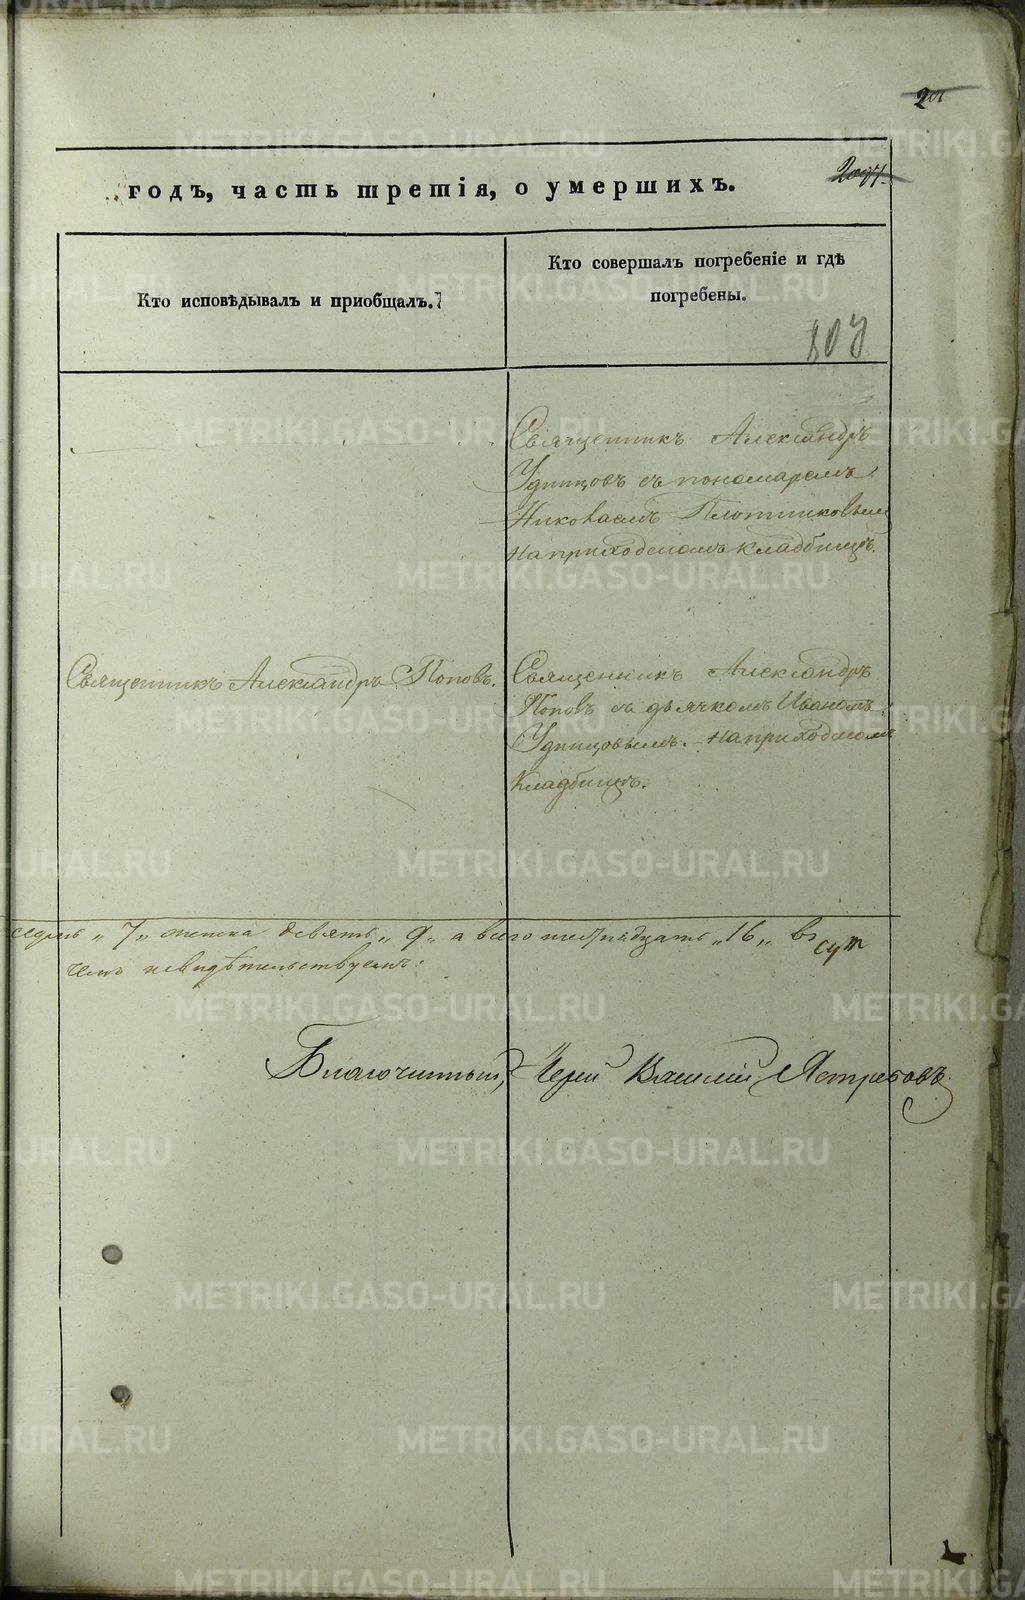 годъ, часть третія, о умершихъ.
Кто исповѣдывалъ и пріобщалъ.
Кто совершалъ погребеніе и гдѣ
погребены.
807
Священникъ Александръ
Удинцовъ съ пономаремъ
Николаемъ Плотниковымъ
на приходскомъ кладбищѣ.
Священникъ Александръ Поповъ.
Священникъ Александръ
Поповъ съ дьячкомъ Иваномъ
Удинцовымъ. на приходскомъ
кладбищѣ.
седмь „7„ женска девять „9„ а всего шестнадцать „16„ въ
чемъ и свидѣтельствуемъ:
Благочинный, Іерей Василій Ястребовъ.
METRIKI.GASO-URAL.RU